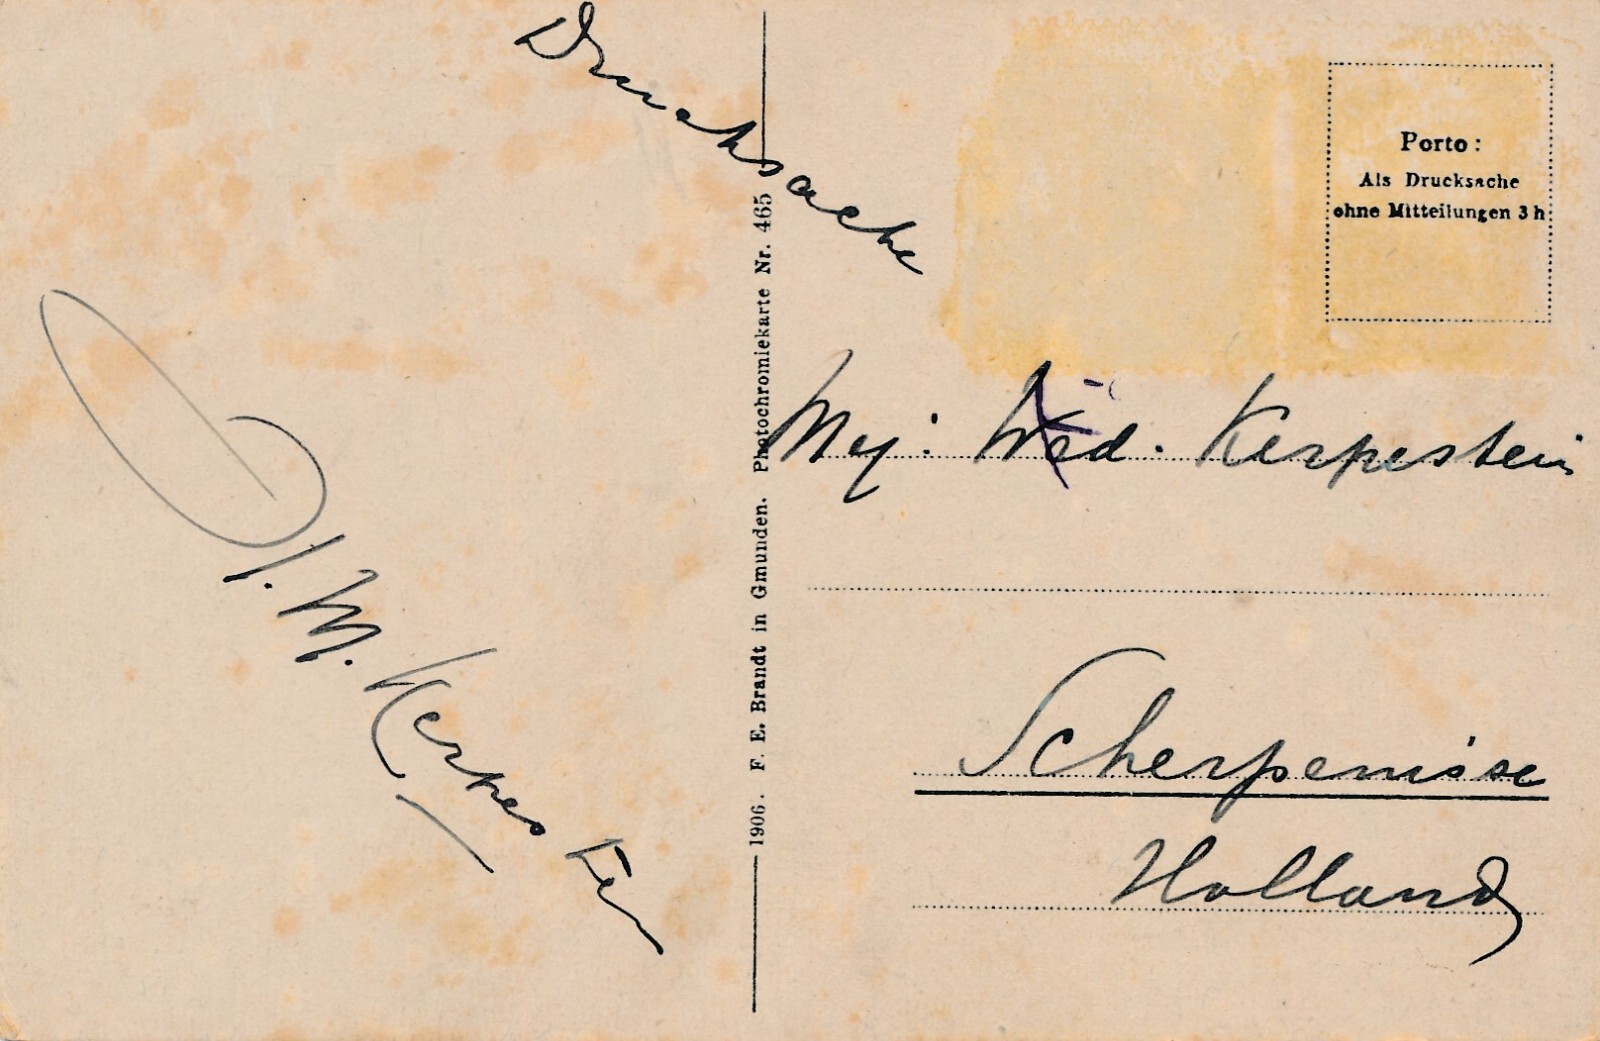 Drucksache
Porto:
Als Drucksache
ohne Mitteilungen 3 h
1906. F. E. Brandt in Gmunden. Photochromiekarte Nr. 465
Mej. Wed. Kerpestein
Scherpenisse
Holland
M. Kerpestein